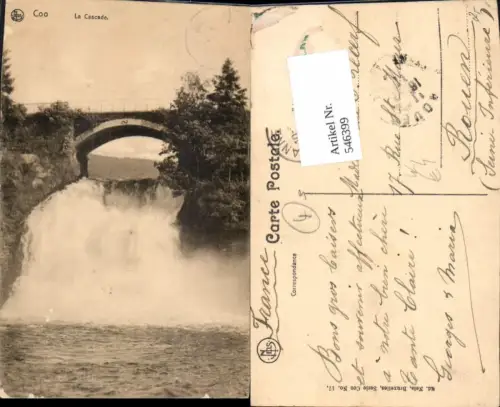 Coo
La Cascade.
Artikel Nr.
546399
Carte Postale.
Correspondance
France
Bons gros baisers
et souvenirs affectueux
à notre bien chère
tante Claire !
Georges & Maria
17 Rue
Rouen
(Seine Inférieure)
Nels
Ed. Nels, Bruxelles, Serie Coo No. 17.